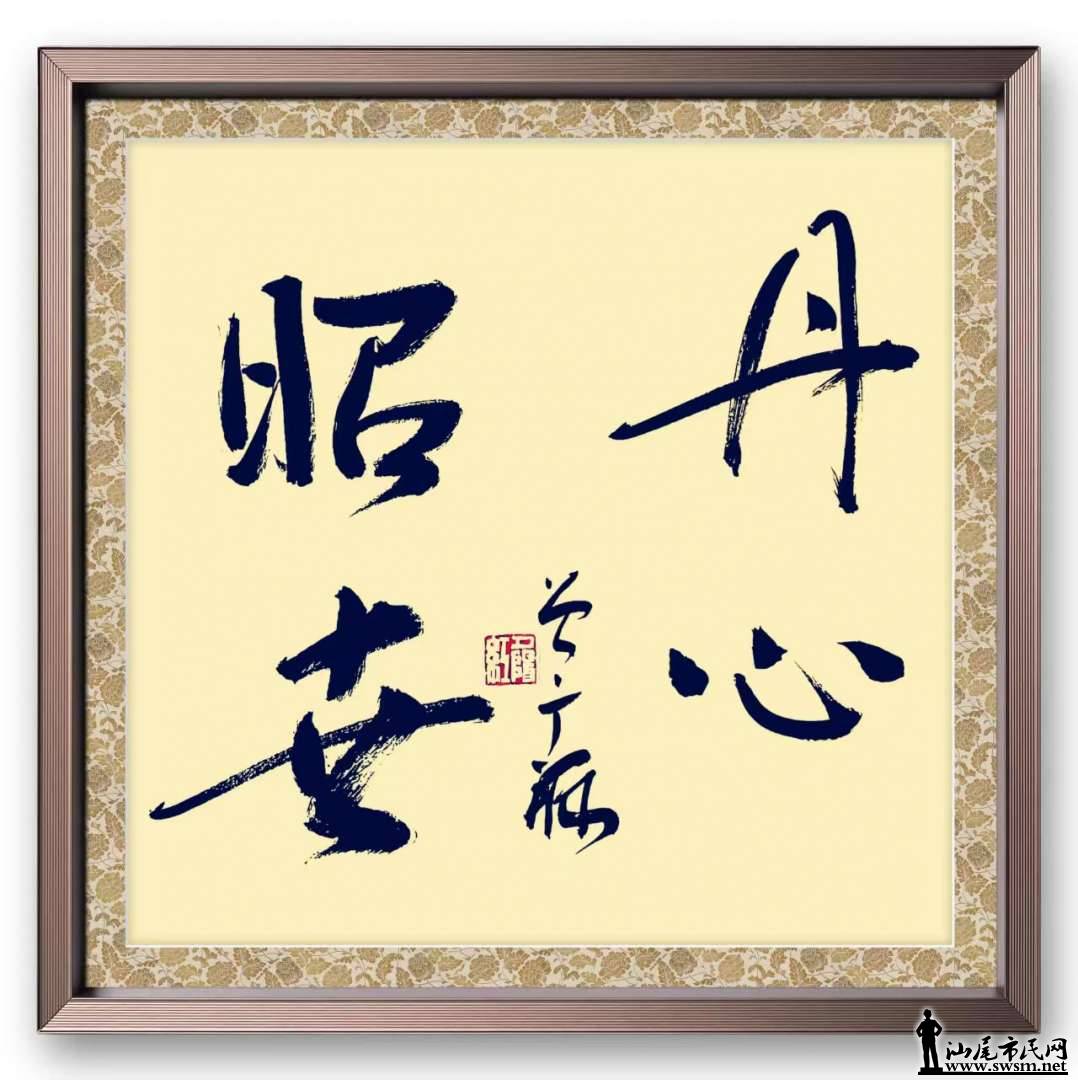 丹心
昭世
汕尾市民网
www.swsm.net